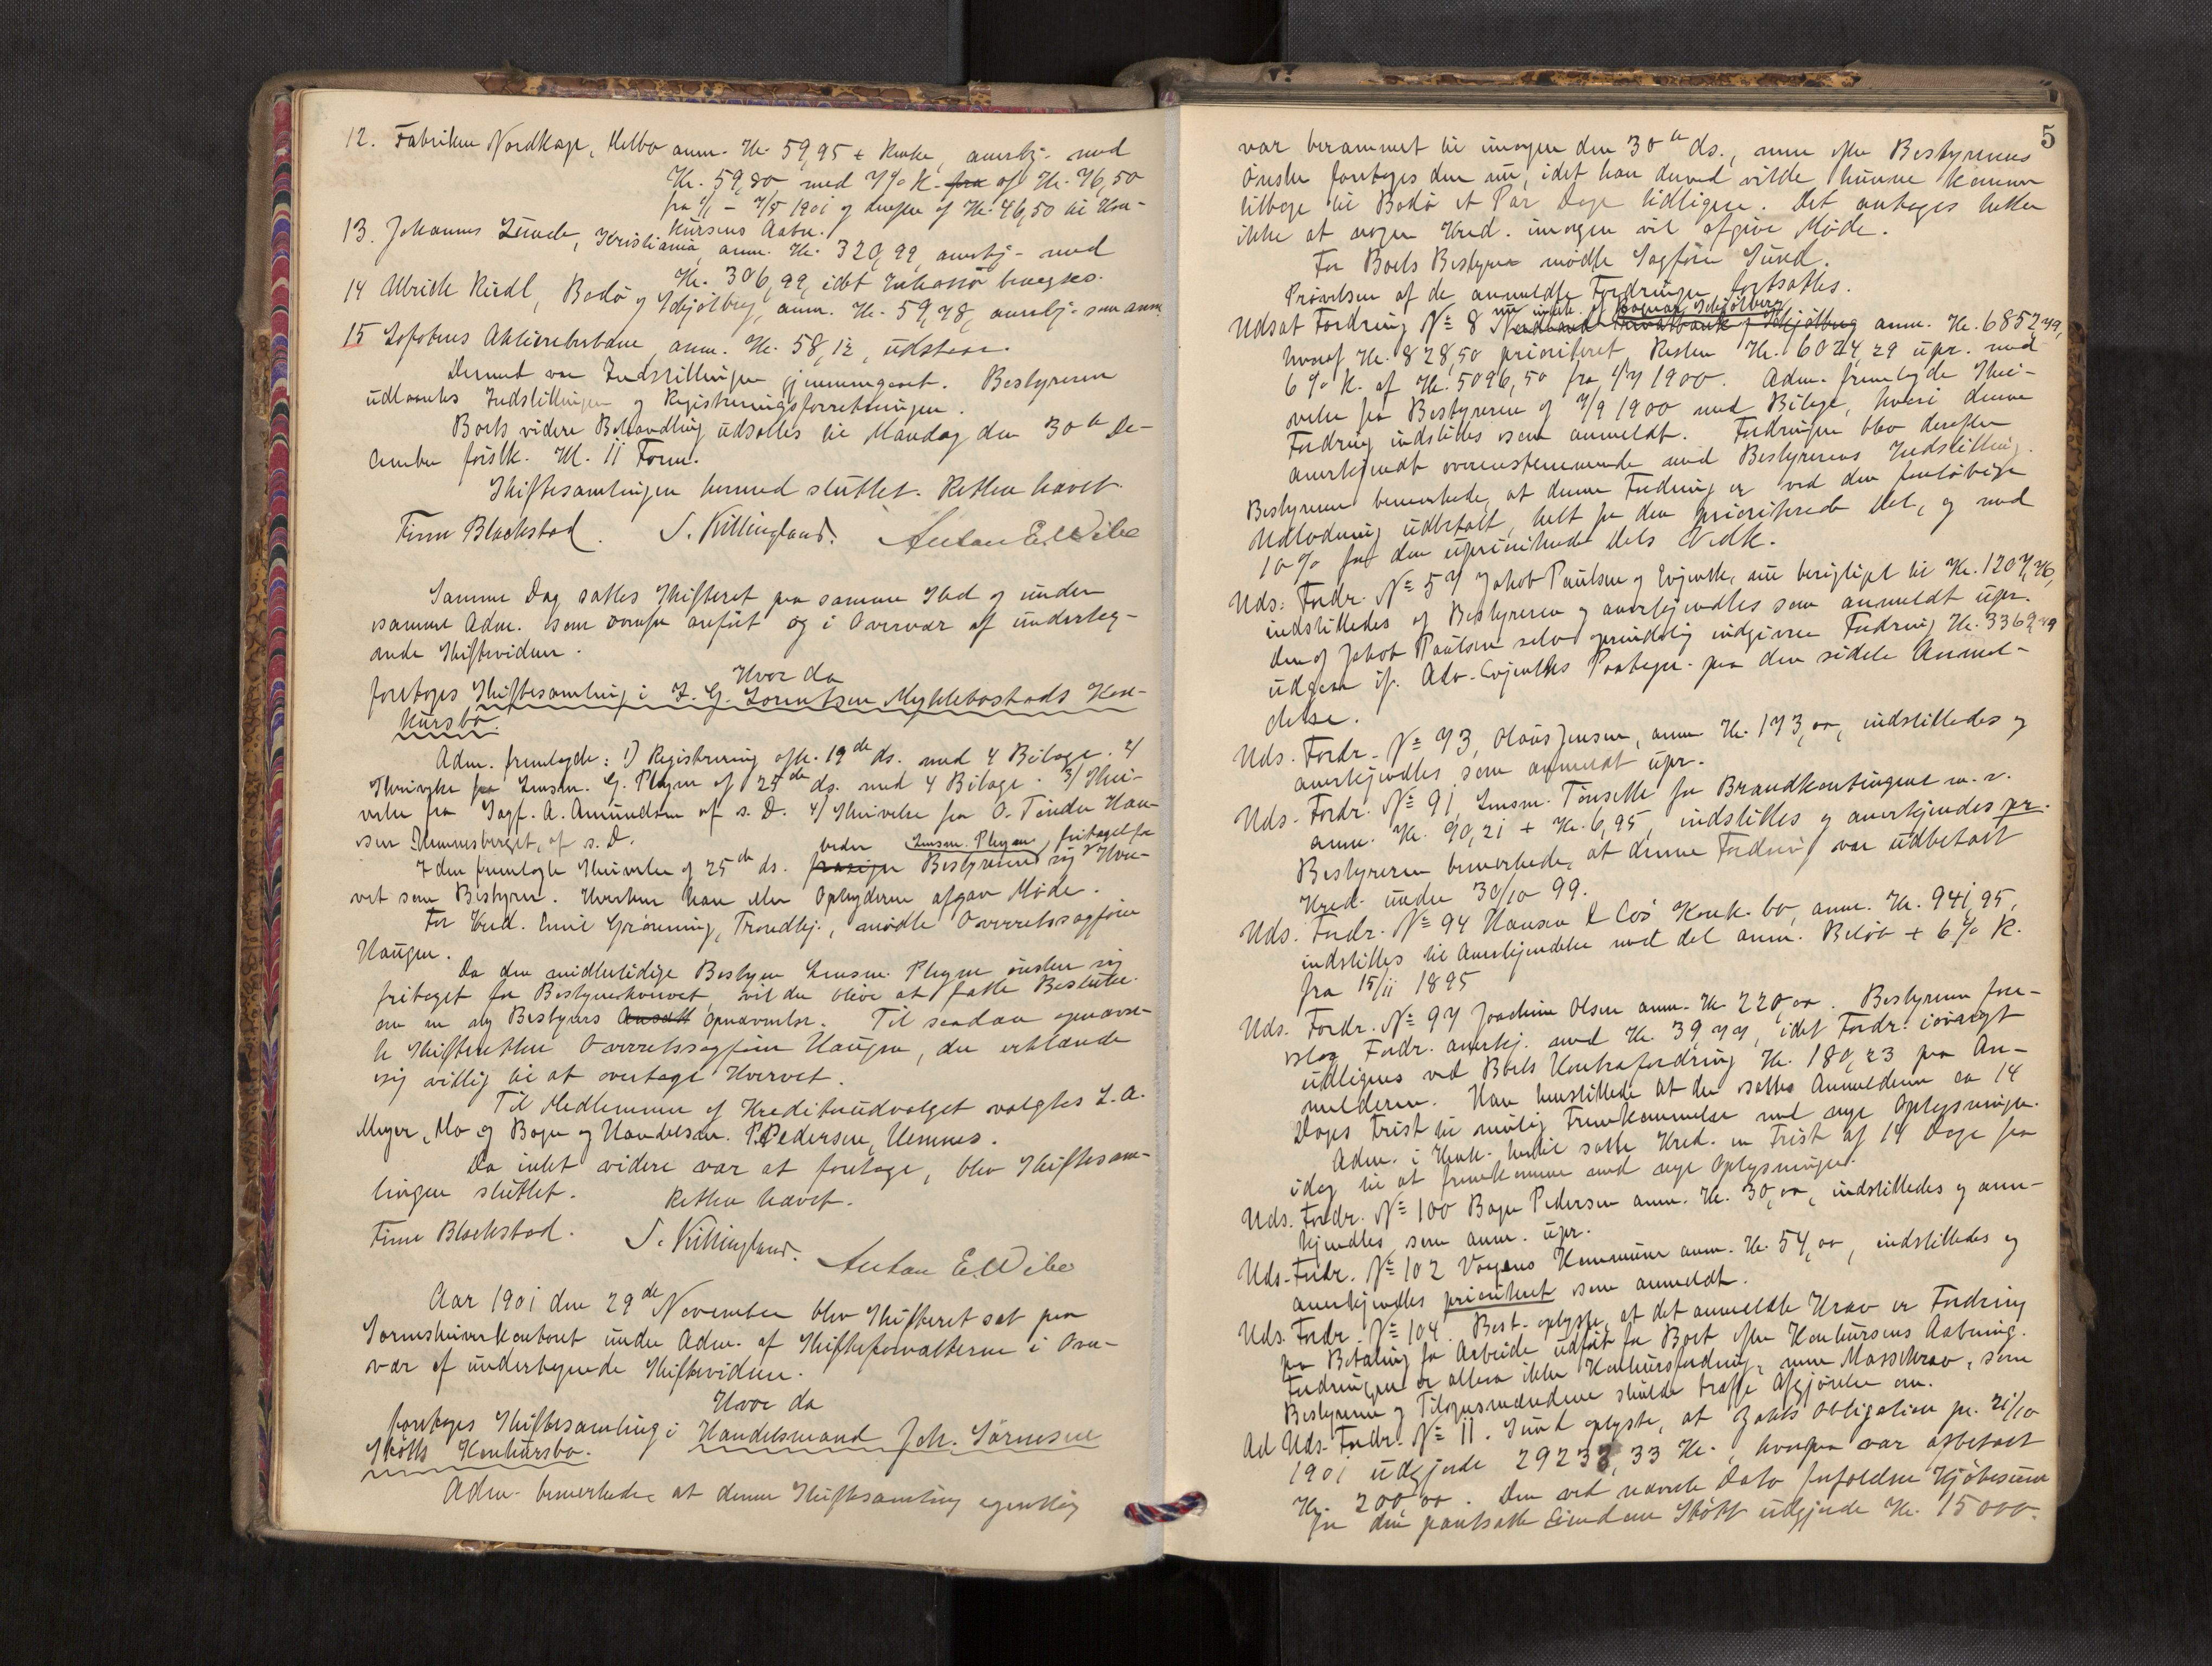 12. Fabriken Nordkap, Melbo anm. Kr. 59,95 + Renter, anerkj. med
Kr. 59,80 med 7% R. fra af Kr. 76,50
fra 1/1 - 7/5 1901 og derefter af Kr. 46,50 til Kon-
kursens Aabn.
13. Johannes Lunde, Kristiania, anm. Kr. 320,99 anerkj. med
Kr. 306,99, idet Inkasso
14 Ulrich Riedl, Bodø og Schjølberg, anm. Kr. 59,78, anerkj. som anm.
15 Lofotens Aktierederbane, anm. Kr. 58,12, udstaar.
Dermed var Indstillingen gjennemgaaet. Bestyreren
udlaantes Indstillingen og Registreringsforretningen.
Boets videre Behandling udsattes til Mandag den 30te De-
cember førstk. Kl. 11 Form.
Skiftesamlingen hermed sluttet. Retten hævet.
Finn Blackstad. S. Killingland. Anton E. Wibe
Samme Dag sattes Skifteret paa samme Sted og under
samme Adm. som ovenfor anført og i Overvær af underteg-
nede Skiftevidner.
Hvor da
foretoges Skiftesamling i J. G. Lorentsen Myklebostads Kon-
kursbo.
Adm. fremlagde: 1) Registrering afh. 19de ds. med 4 Bilage. 2/
Skrivelse fra Lensm. G. Plhym af 25de ds. med 4 Bilage. 3/ Skri-
velse fra Sagf. A. Amundsen af s. D. 4/ Skrivelse fra O. Tinder Han-
sen Hemnesberget, af s. D.
I den fremlagte Skrivelse af 25de ds. beder Lensm. Plhym, Bestyreren sig fritaget for Hver-
vet som Bestyrer. Hverken han eller Opbyderen afgav Møde.
For Kred. Emil Grønning, Trondhj., mødte Overretssagfører
Haugen.
Da den midlertidige Bestyrer Lensm. Plhym ønsker sig
fritaget for Bestyrerhvervet, vil der blive at fatte Beslutn.
om en ny Bestyrers Ansætt Opnævnelse. Til saadan opnævn-
te Skifteretten Overretssagfører Haugen, der erklærede
sig villig til at overtage Hvervet.
Til Medlemmer af Kreditorudvalget valgtes L. A.
Meyer, Mo og Bager og Handelsm. P. Pedersen, Hemnes.
Da intet videre var at foretage, blev Skiftesam-
lingen sluttet. Retten hævet.
Finn Blackstad. S. Killingland. Anton E. Wibe
Aar 1901 den 29de November blev Skifteret sat paa
Sorenskriverkontoret under Adm. af Skifteforvalteren i Over-
vær af undertegnede Skiftevidner.
Hvor da
foretoges Skiftesamling i Handelsmand Joh. Sørensen
Støtts Konkursbo.
Adm. bemerkede at denne Skiftesamling egentlig
5
var berammet til imorgen den 30te ds., men efter Bestyrerens
Ønske foretoges den nu, idet han derved vilde kunne komme
tilbage til Bodø et Par Dage tidligere. Det antages heller
ikke at nogen Kred. imorgen vil afgive Møde.
For Boets Bestyrer mødte Sagfører Sund.
Prøvelsen af de anmeldte Fordringer fortsattes.
Udsat Fordring No 8 Nordlands Privatbank, Schjølberg anm. Kr. 6852,79,
hvoraf Kr. 828,50 prioriteret, Resten Kr. 6024,29 upr. med
6% R. af Kr. 5096,50 fra 1/7 1900. Adm. fremlagde Skri-
velse fra Bestyreren af 7/9 1900 med Bilage, hvori denne
Fordring indstilles som anmeldt. Fordringen blev derefter
anerkjendt overensstemmende med Bestyrerens Indstilling.
Bestyreren bemerkede, at denne Fordring er ved den foreløbige
Udlodning udbetalt, helt for den prioriterede Del, og med
10% for den uprioriterede Dels Vedk.
Uds. Fordr. No 57 Jakob Paulsen og Evjenth, nu berigtiget til Kr. 1207,76,
indstilledes af Bestyreren og anerkjendtes som anmeldt upr.
Den af Jakob Paulsen selv oprindelig indgivne Fordring Kr. 3369,79
udgaar if. Adv. Evjenths Paategn. paa den sidste Anmel-
delse.
Uds. Fordr. No 73, Olaus Jensen, anm. Kr. 173,00, indstilledes og
anerkjendtes som anmeldt upr.
Uds. Fordr. No 91, Lensm. Tønsette for Brandkontingent m. v.
anm. Kr. 90,21 + Kr. 6,95, indstilles og anerkjendes pr.
Bestyreren bemerkede, at denne Fordring var udbetalt
Kred. under 30/10 99.
Uds. Fordr. No 94 Hansen & Cos Konk.bo, anm. Kr. 941,95,
indstilles til Anerkjendelse med det anm. Beløb + 6% R.
fra 15/11 1895
Uds. Fordr. No 97 Joachim Olsen anm. Kr. 220,00. Bestyreren fore-
slog Fordr. anerkj. med Kr. 39,77, idet Fordr. iøvrigt
udlignes ved Boets Kontrafordring Kr. 180,23 paa An-
melderen. Han henstillede at der sattes Anmelderen en 14
Dages Frist til mulig Fremkommelse med nye Oplysninger.
Adm. i Henh. hertil satte Kred. en Frist af 14 Dage fra
idag til at fremkomme med nye Oplysninger.
Uds. Fordr. No 100 Bager Pedersen anm. Kr. 30,00, indstilledes og aner-
kjendtes som anm. upr.
Uds. Fordr. No 102 Vaagans Kommune anm. Kr. 54,00, indstilledes og
anerkjendtes prioriteret som anmeldt.
Uds. Fordr. No 104. Best. oplyste, at det anmeldte Krav er Fordring
paa Betaling for Arbeide udført for Boet efter Konkursens Aabning.
Fordringen er altsaa ikke Konkursfordring, men Massekrav, som
Bestyreren og Tilsynsmændene skulde træffe Afgjørelse om.
Ad Uds. Fordr. No 11. Sund oplyste, at Zahls Obligation pr. 21/10
1901 udgjorde 29233,33 Kr., hvorpaa var afbetalt
Kr. 200,00. Den ved nævnte Dato forfaldne Kjøbesum
for den pantsatte Eiendom Støtt udgjorde Kr. 15000.